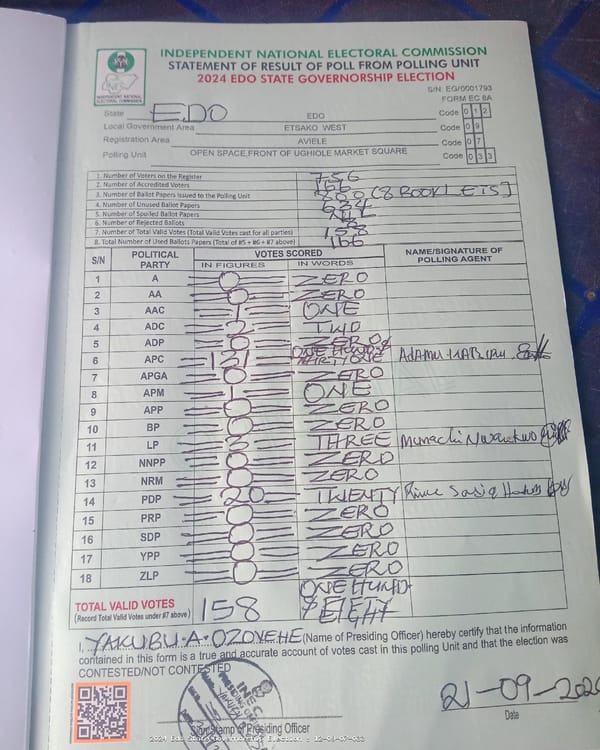 INDEPENDENT NATIONAL ELECTORAL COMMISSION
STATEMENT OF RESULT OF POLL FROM POLLING UNIT
2024 EDO STATE GOVERNORSHIP ELECTION
S/N: EG/0001793
FORM EC 8A
State EDO EDO Code 0 1 2
Local Government Area ETSAKO WEST Code 0 9
Registration Area AVIELE Code 0 7
Polling Unit OPEN SPACE,FRONT OF UGHIOLE MARKET SQUARE Code 0 3 3
1. Number of Voters on the Register 756
2. Number of Accredited Voters 166
3. Number of Ballot Papers Issued to the Polling Unit 800 (8 BOOKLETS)
4. Number of Unused Ballot Papers 634
5. Number of Spoiled Ballot Papers
6. Number of Rejected Ballots 8
7. Number of Total Valid Votes (Total Valid Votes cast for all parties) 158
8. Total Number of Used Ballots Papers (Total of #5 + #6 + #7 above) 166
S/N POLITICAL PARTY VOTES SCORED NAME/SIGNATURE OF POLLING AGENT
IN FIGURES IN WORDS
1 A 0 ZERO
2 AA 0 ZERO
3 AAC 1 ONE
4 ADC 2 TWO
5 ADP 0 ZERO
6 APC 131 ADAMU KABIRU
7 APGA 0 ZERO
8 APM 1 ONE
9 APP 0 ZERO
10 BP 0 ZERO
11 LP 3 THREE
12 NNPP 0 ZERO
13 NRM 0 ZERO
14 PDP 20 TWENTY
15 PRP 0 ZERO
16 SDP 0 ZERO
17 YPP 0 ZERO
18 ZLP 0 ZERO
TOTAL VALID VOTES 158 ONE HUND-
(Record Total Valid Votes under #7 above) EIGHT
I, YAKUBU·A·OZOVEHE (Name of Presiding Officer) hereby certify that the information
contained in this form is a true and accurate account of votes cast in this polling Unit and that the election was
CONTESTED/NOT CONTESTED
INEC
21-09-202
Presiding Officer
Date